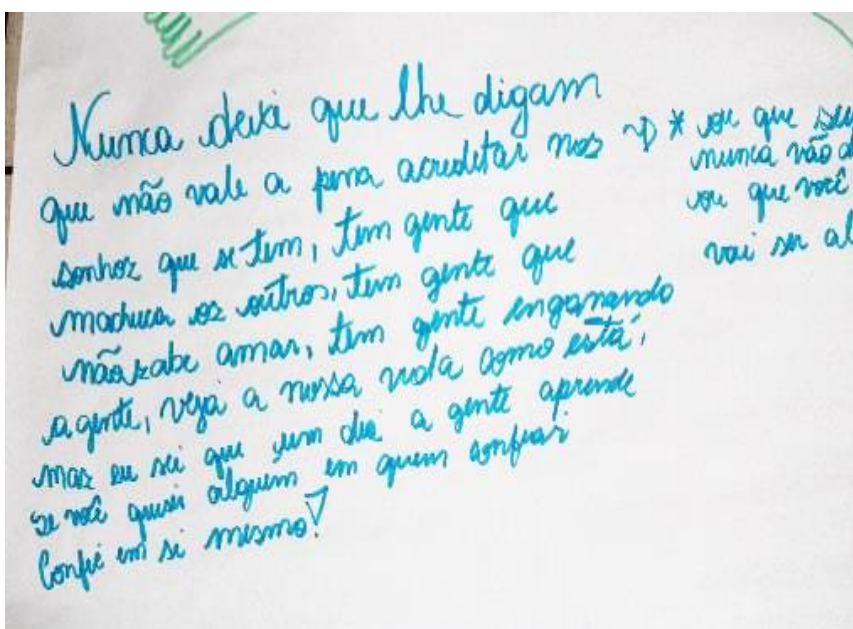 Nunca deixe que lhe digam
que não vale a pena acreditar nos
sonhos que se tem, tem gente que
machuca os outros, tem gente que
não sabe amar, tem gente enganando
a gente, veja a nossa vida como está,
mas eu sei que um dia a gente aprende
se você quiser alguem em quem confiar
Confie em si mesmo!
* ou que seu
nunca vão d
ou que você
vai ser al